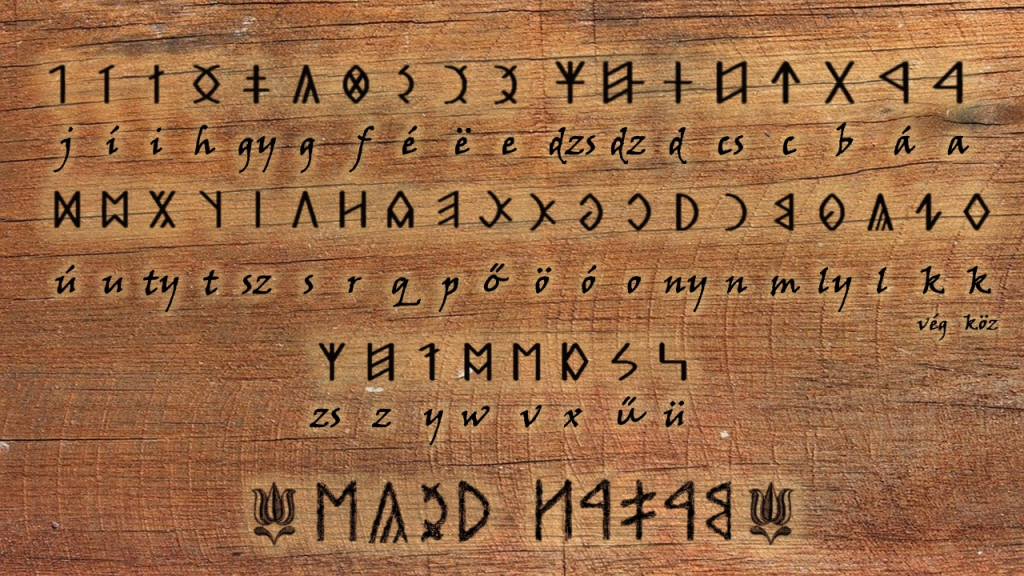 𐲀 𐲁 𐲂 𐲄 𐲆 𐲇 𐲇‍𐲯 𐲇‍𐲰 𐲉 𐲊 𐲋 𐲌 𐲍 𐲎 𐲏 𐲐 𐲑 𐲒
j í i h gy g f é ë e dzs dz d cs c b á a
𐲓 𐲔 𐲖 𐲗 𐲘 𐲙 𐲚 𐲛 𐲜 𐲞 𐲟 𐲠 𐲓‍𐲮 𐲢 𐲤 𐲥 𐲦 𐲨 𐲪 𐲫
ú u ty t sz s r q p ő ö ó o ny n m ly l k k
vég köz
𐲬 𐲭 𐲓‍𐲥 𐲮 𐲮‍𐲮 𐲐‍𐲒 𐲯 𐲰
zs z y w v x ű ü
𐲘𐲀𐲎𐲀𐲢 𐲚𐲉𐲖𐲮